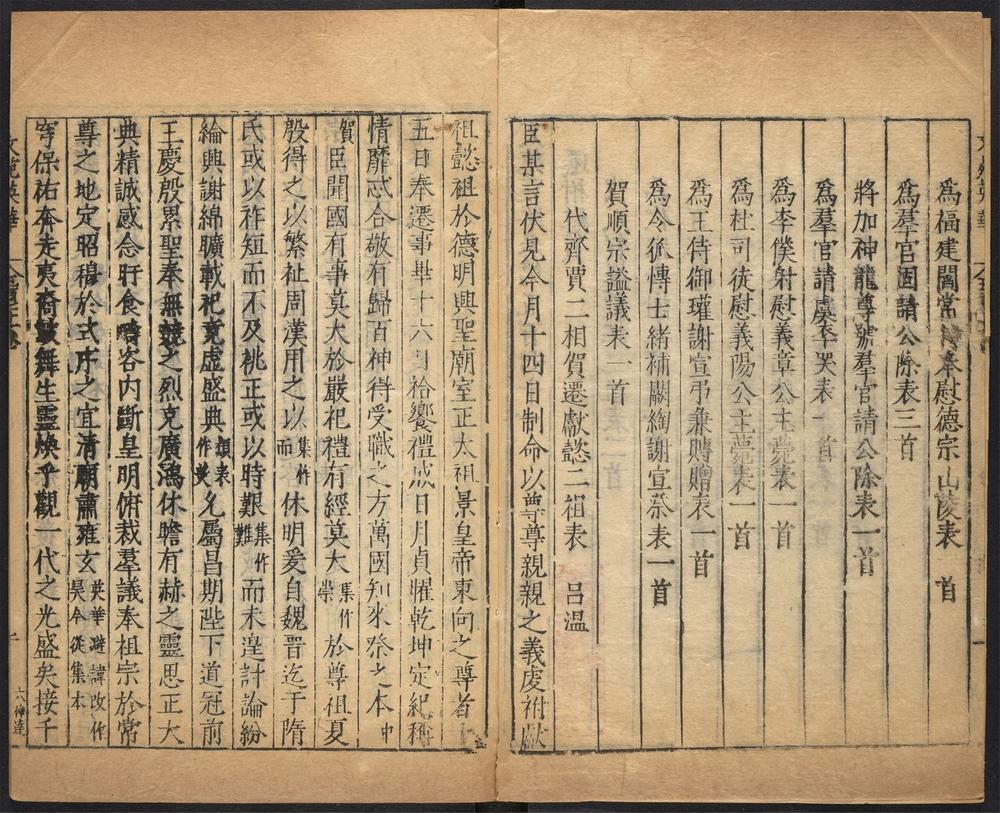 為福建閻常侍奉慰德宗山陵表 首
為羣官固請公除表三首
將加神龍尊號羣官請公除表一首
為羣官請虞卒哭表一首
為李僕射慰義章公主薨表一首
為杜司徒慰義陽公主薨表一首
為王侍御瓘謝宣弔兼賻贈表一首
為令狐博士緒補闕綯謝宣祭表一首
賀順宗謚議表一首
代齊賈二相賀遷獻懿二祖表 呂溫
臣某言伏見今月十四日制命以尊尊親親之義虔祔獻
祖懿祖於德明興聖廟室正太祖景皇帝東向之尊者
五日奉遷事畢十六日祫饗禮成日月貞耀乾坤定紀稱
情靡忒合敬有歸百神得受職之方萬國知來祭之本中
賀臣聞國有事莫大於嚴祀禮有經莫大集作崇於尊祖夏
殷得之以繁祉周漢用之以集作而休明爰自魏晉迄于隋
氏或以祚短而不及祧正或以時艱集作難而未遑討論紛
綸興謝綿曠載祀竟虛盛典類表作美允屬昌期陛下道冠前
王慶殷累聖奉無競之烈克廣鴻休瞻有赫之靈思正大
典精誠感念旰食疇咨內斷皇明俯裁羣議奉祖宗於常
尊之地定昭穆於式序之宜清廟肅雍玄英華避諱改作昊今從集本
穹保祐奔走夷裔鼓舞生靈煥乎觀一代之光盛矣接千
文苑英華